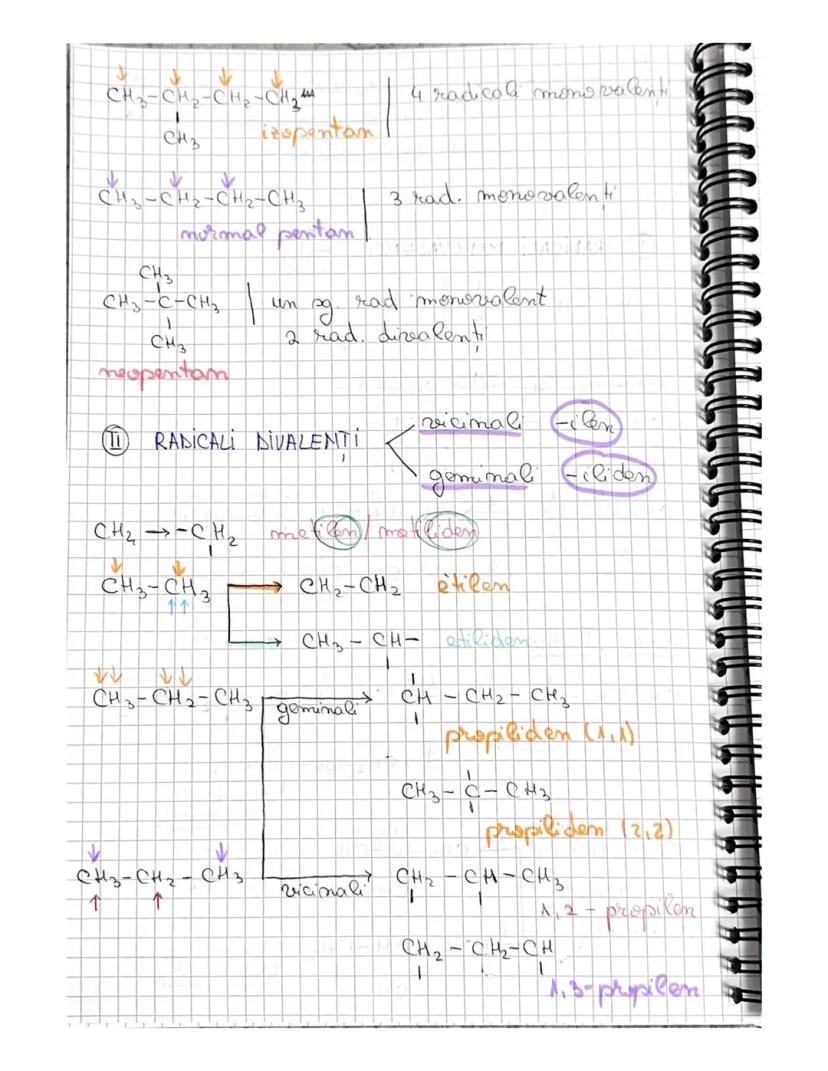 CH₃-CH₂-CH₂-CH₃ | 4 radicali monovalenți
CH₃ izopentan
CH₃-CH₂-CH₂-CH₃ | 3 rad. monovalenți
normal pentan
CH₃
CH₃-C-CH₃ | un sg. rad monovalent
CH₃ 2 rad. divalenți
neopentan
II RADICALI DIVALENȚI vicinali -ilen
geminali -iliden
CH₄ → -CH₂ metilen/metiliden
CH₃-CH₃ → CH₂-CH₂ etilen
→ CH₃-CH- etiliden
CH₃-CH₂-CH₃ geminali → CH-CH₂-CH₃
propiliden (1,1)
CH₃-C-CH₃
propiliden (2,2)
CH₃-CH₂-CH₃ vicinali → CH₂-CH-CH₃
1,2-propilen
CH₂-CH₂-CH
1,3-propilen